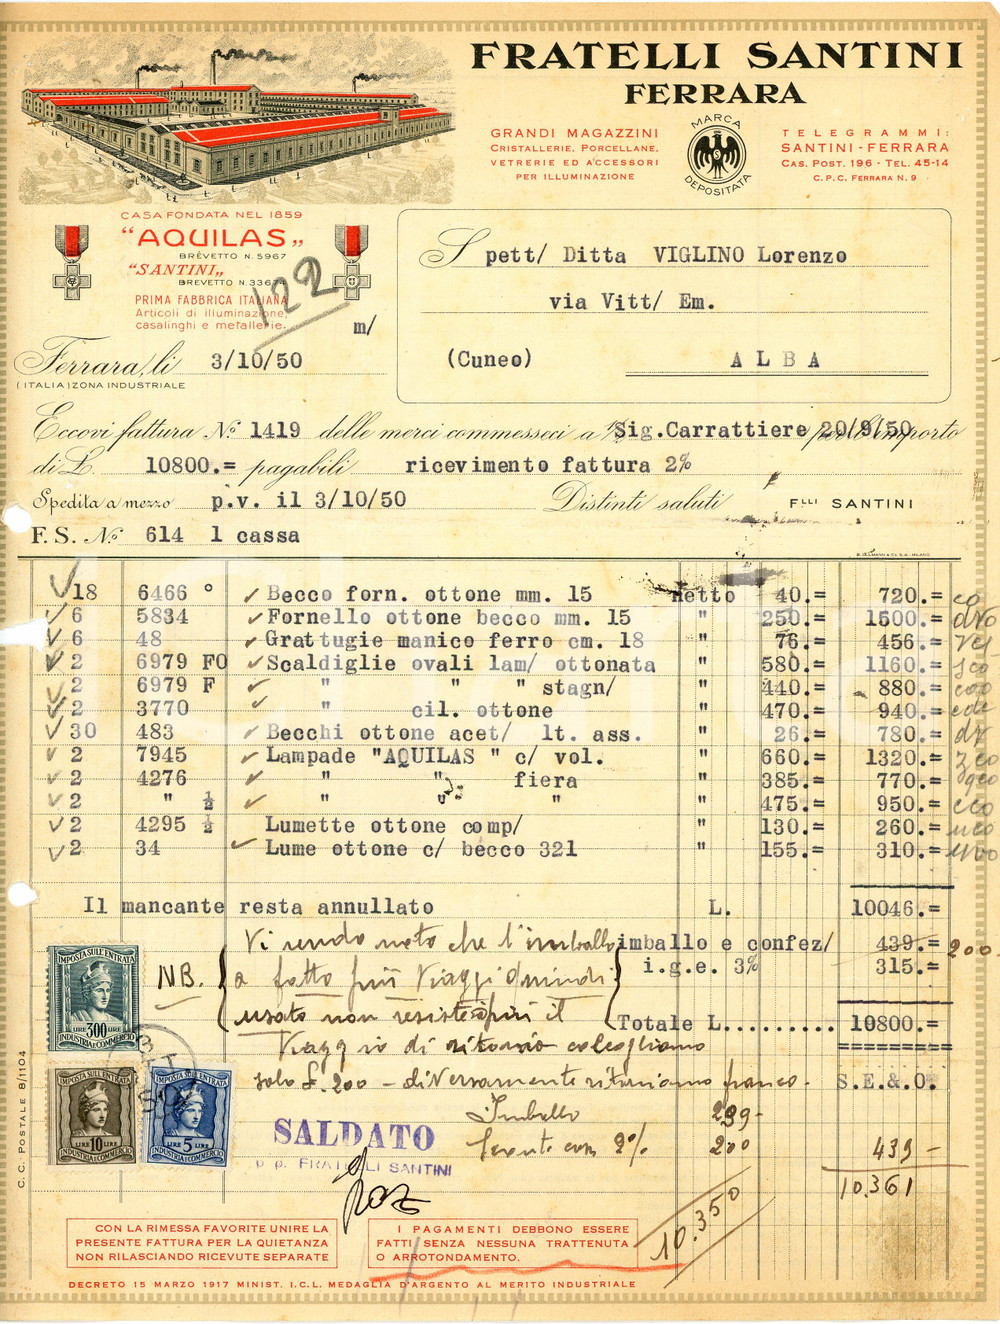 FRATELLI SANTINI
FERRARA
GRANDI MAGAZZINI
CRISTALLERIE, PORCELLANE,
VETRERIE ED ACCESSORI
PER ILLUMINAZIONE
MARCA
DEPOSITATA
TELEGRAMMI:
SANTINI - FERRARA
CAS. POST. 196 - TEL. 45-14
C.P.C. FERRARA N. 9
CASA FONDATA NEL 1859
"AQUILAS„
BREVETTO N. 5967
"SANTINI„
BREVETTO N. 33674
PRIMA FABBRICA ITALIANA
Articoli di illuminazione,
casalinghi e metallerie.
122
m/
Spett/ Ditta VIGLINO Lorenzo
via Vitt/ Em.
(Cuneo) ALBA
Ferrara, li 3/10/50
(ITALIA) ZONA INDUSTRIALE
Eccovi fattura N.º 1419 delle merci commesseci a ½ Sig.Carrattiere 20/9/50 per l'importo
di L. 10800.= pagabili ricevimento fattura 2%
Spedita a mezzo p.v. il 3/10/50 Distinti saluti F.LLI SANTINI
F. S. N.º 614 1 cassa
18 6466 º Becco forn. ottone mm. 15 netto 40.= 720.=
6 5834 Fornello ottone becco mm. 15 " 250.= 1500.=
6 48 Grattugie manico ferro cm. 18 " 76.= 456.=
2 6979 FO Scaldiglie ovali lam/ ottonata " 580.= 1160.=
2 6979 F " " " stagn/ " 440.= 880.=
2 3770 " cil. ottone " 470.= 940.=
30 483 Becchi ottone acet/ lt. ass. " 26.= 780.=
2 7945 Lampade "AQUILAS " c/ vol. " 660.= 1320.=
2 4276 " " fiera " 385.= 770.=
2 " ½ " " " " 475.= 950.=
2 4295 ½ Lumette ottone comp/ " 130.= 260.=
2 34 Lume ottone c/ becco 321 " 155.= 310.=
Il mancante resta annullato L. 10046.=
imballo e confez/ 439.= 200.
i.g.e. 3% 315.=
Totale L.......... 10800.=
S.E.&O.
NB. Vi rendo noto che l'imballo
a fatto più viaggi quindi
usato non resiste più il
viaggio di ritorno accogliamo
solo £. 200 - diversamente ritorniamo franco.
Imballo 239-
Sconto com 2% 200 439 -
10.361
10.350
IMPOSTA SULL'ENTRATA
LIRE 300 LIRE
INDUSTRIA E COMMERCIO
IMPOSTA SULL'ENTRATA
LIRE 10 LIRE
INDUSTRIA E COMMERCIO
IMPOSTA SULL'ENTRATA
LIRE 5 LIRE
INDUSTRIA E COMMERCIO
SALDATO
p. p. FRATELLI SANTINI
C. C. POSTALE 8/1104
CON LA RIMESSA FAVORITE UNIRE LA
PRESENTE FATTURA PER LA QUIETANZA
NON RILASCIANDO RICEVUTE SEPARATE
I PAGAMENTI DEBBONO ESSERE
FATTI SENZA NESSUNA TRATTENUTA
O ARROTONDAMENTO.
DECRETO 15 MARZO 1917 MINIST. I.C.L. MEDAGLIA D'ARGENTO AL MERITO INDUSTRIALE